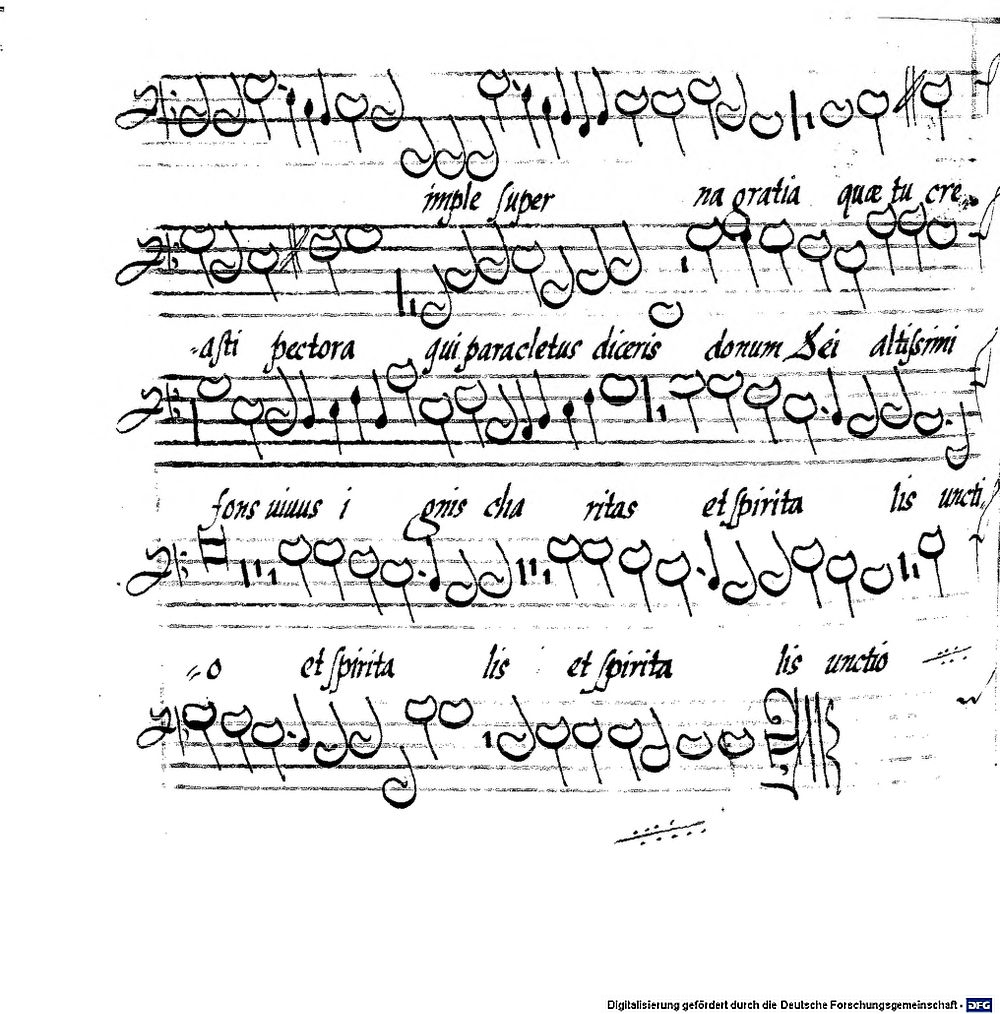 imple super na gratia quæ tu cre-
-asti pectora qui paracletus diceris donum Dei altissimi
fons uiuus i gnis cha ritas et spirita lis uncti,
-o et spirita lis et spirita lis unctio
Digitalisierung gefördert durch die Deutsche Forschungsgemeinschaft - DFG